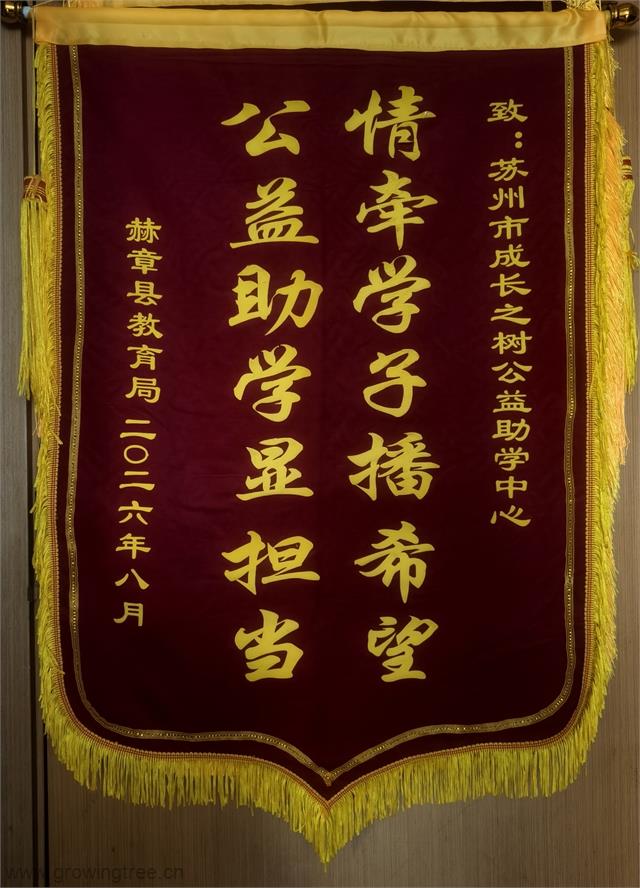 致：苏州市成长之树公益助学中心
情牵学子播希望
公益助学显担当
赫章县教育局 二〇二六年八月
www.growingtree.cn